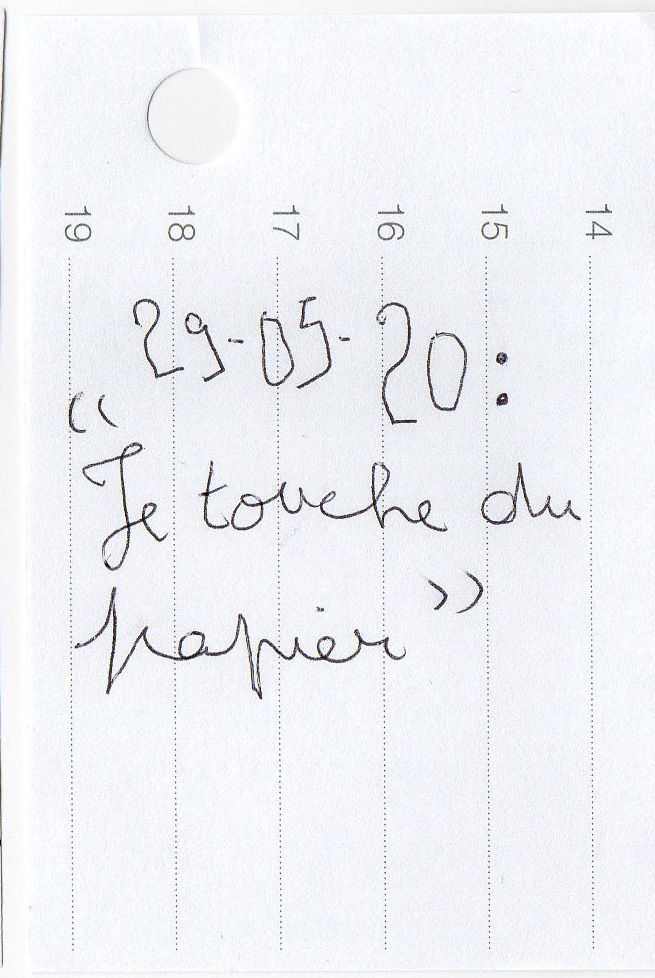 19 18 17 16 15 14
29-05-20:
"Je touche du
papier"